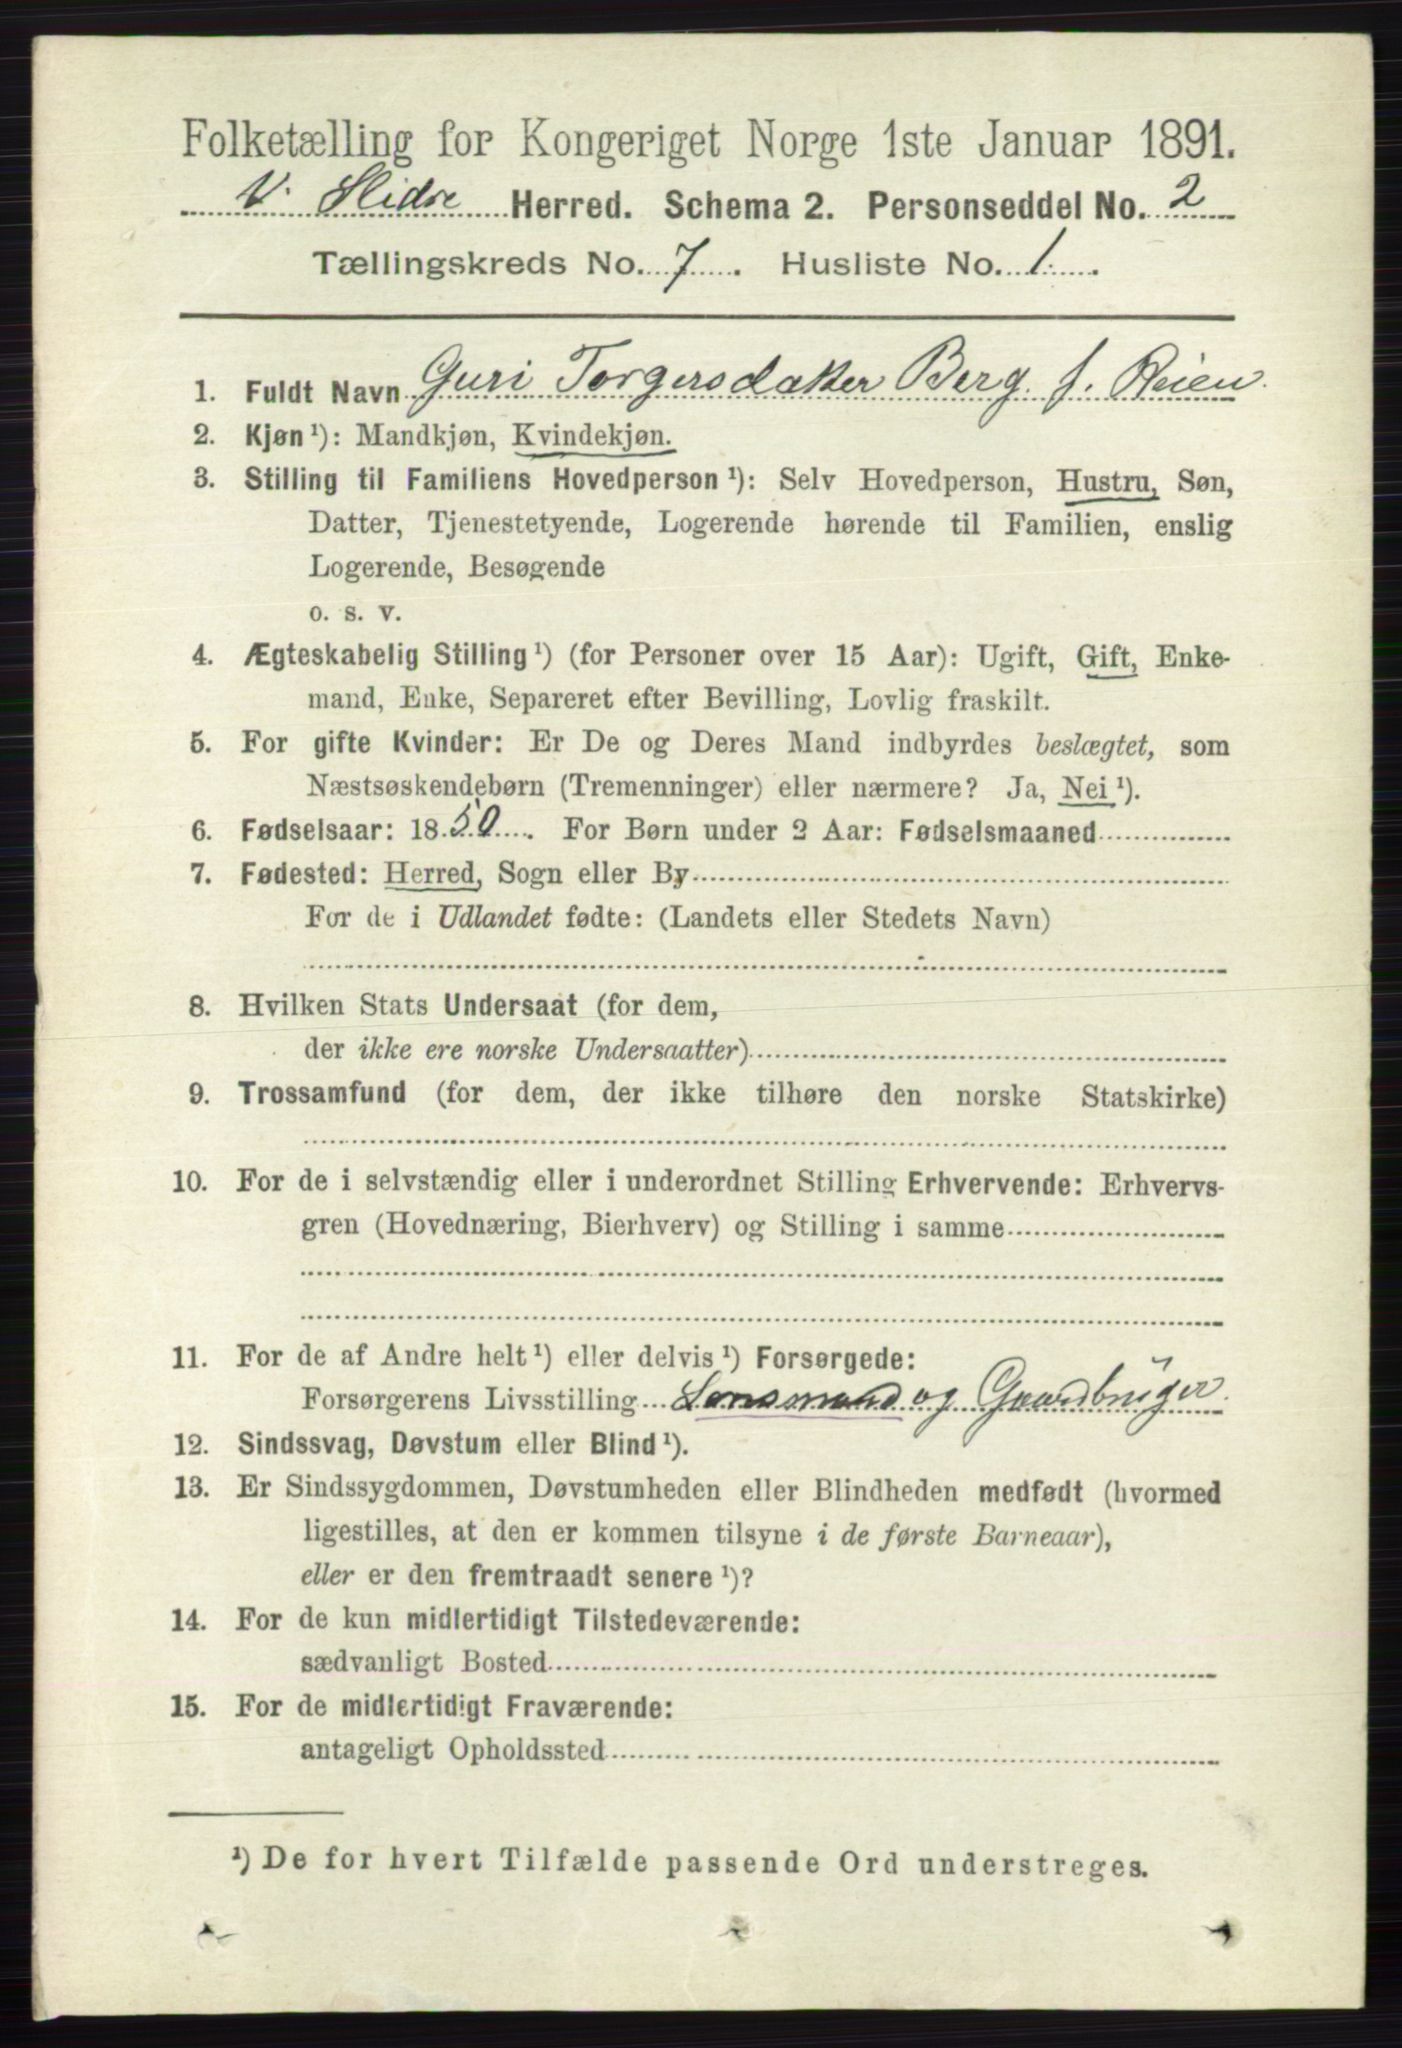 Folketælling for Kongeriget Norge 1ste Januar 1891.
V. Slidre Herred. Schema 2. Personseddel No. 2
Tællingskreds No. 7. Husliste No. 1.
1. Fuldt Navn Guri Torgersdatter Berg f. Reien.
2. Kjøn¹): Mandkjøn, Kvindekjøn.
3. Stilling til Familiens Hovedperson¹): Selv Hovedperson, Hustru, Søn,
Datter, Tjenestetyende, Logerende hørende til Familien, enslig
Logerende, Besøgende
o. s. v.
4. Ægteskabelig Stilling¹) (for Personer over 15 Aar): Ugift, Gift, Enke-
mand, Enke, Separeret efter Bevilling, Lovlig fraskilt.
5. For gifte Kvinder: Er De og Deres Mand indbyrdes beslægtet, som
Næstsøskendebørn (Tremenninger) eller nærmere? Ja, Nei¹).
6. Fødselsaar: 1850. For Børn under 2 Aar: Fødselsmaaned
7. Fødested: Herred, Sogn eller By
For de i Udlandet fødte: (Landets eller Stedets Navn)
8. Hvilken Stats Undersaat (for dem,
der ikke ere norske Undersaatter)
9. Trossamfund (for dem, der ikke tilhøre den norske Statskirke)
10. For de i selvstændig eller i underordnet Stilling Erhvervende: Erhvervs-
gren (Hovednæring, Bierhverv) og Stilling i samme
11. For de af Andre helt¹) eller delvis¹) Forsørgede:
Forsørgerens Livsstilling Lensmand og Gaardbruger.
12. Sindssvag, Døvstum eller Blind¹).
13. Er Sindssygdommen, Døvstumheden eller Blindheden medfødt (hvormed
ligestilles, at den er kommen tilsyne i de første Barneaar),
eller er den fremtraadt senere¹)?
14. For de kun midlertidigt Tilstedeværende:
sædvanligt Bosted
15. For de midlertidigt Fraværende:
antageligt Opholdssted
¹) De for hvert Tilfælde passende Ord understreges.